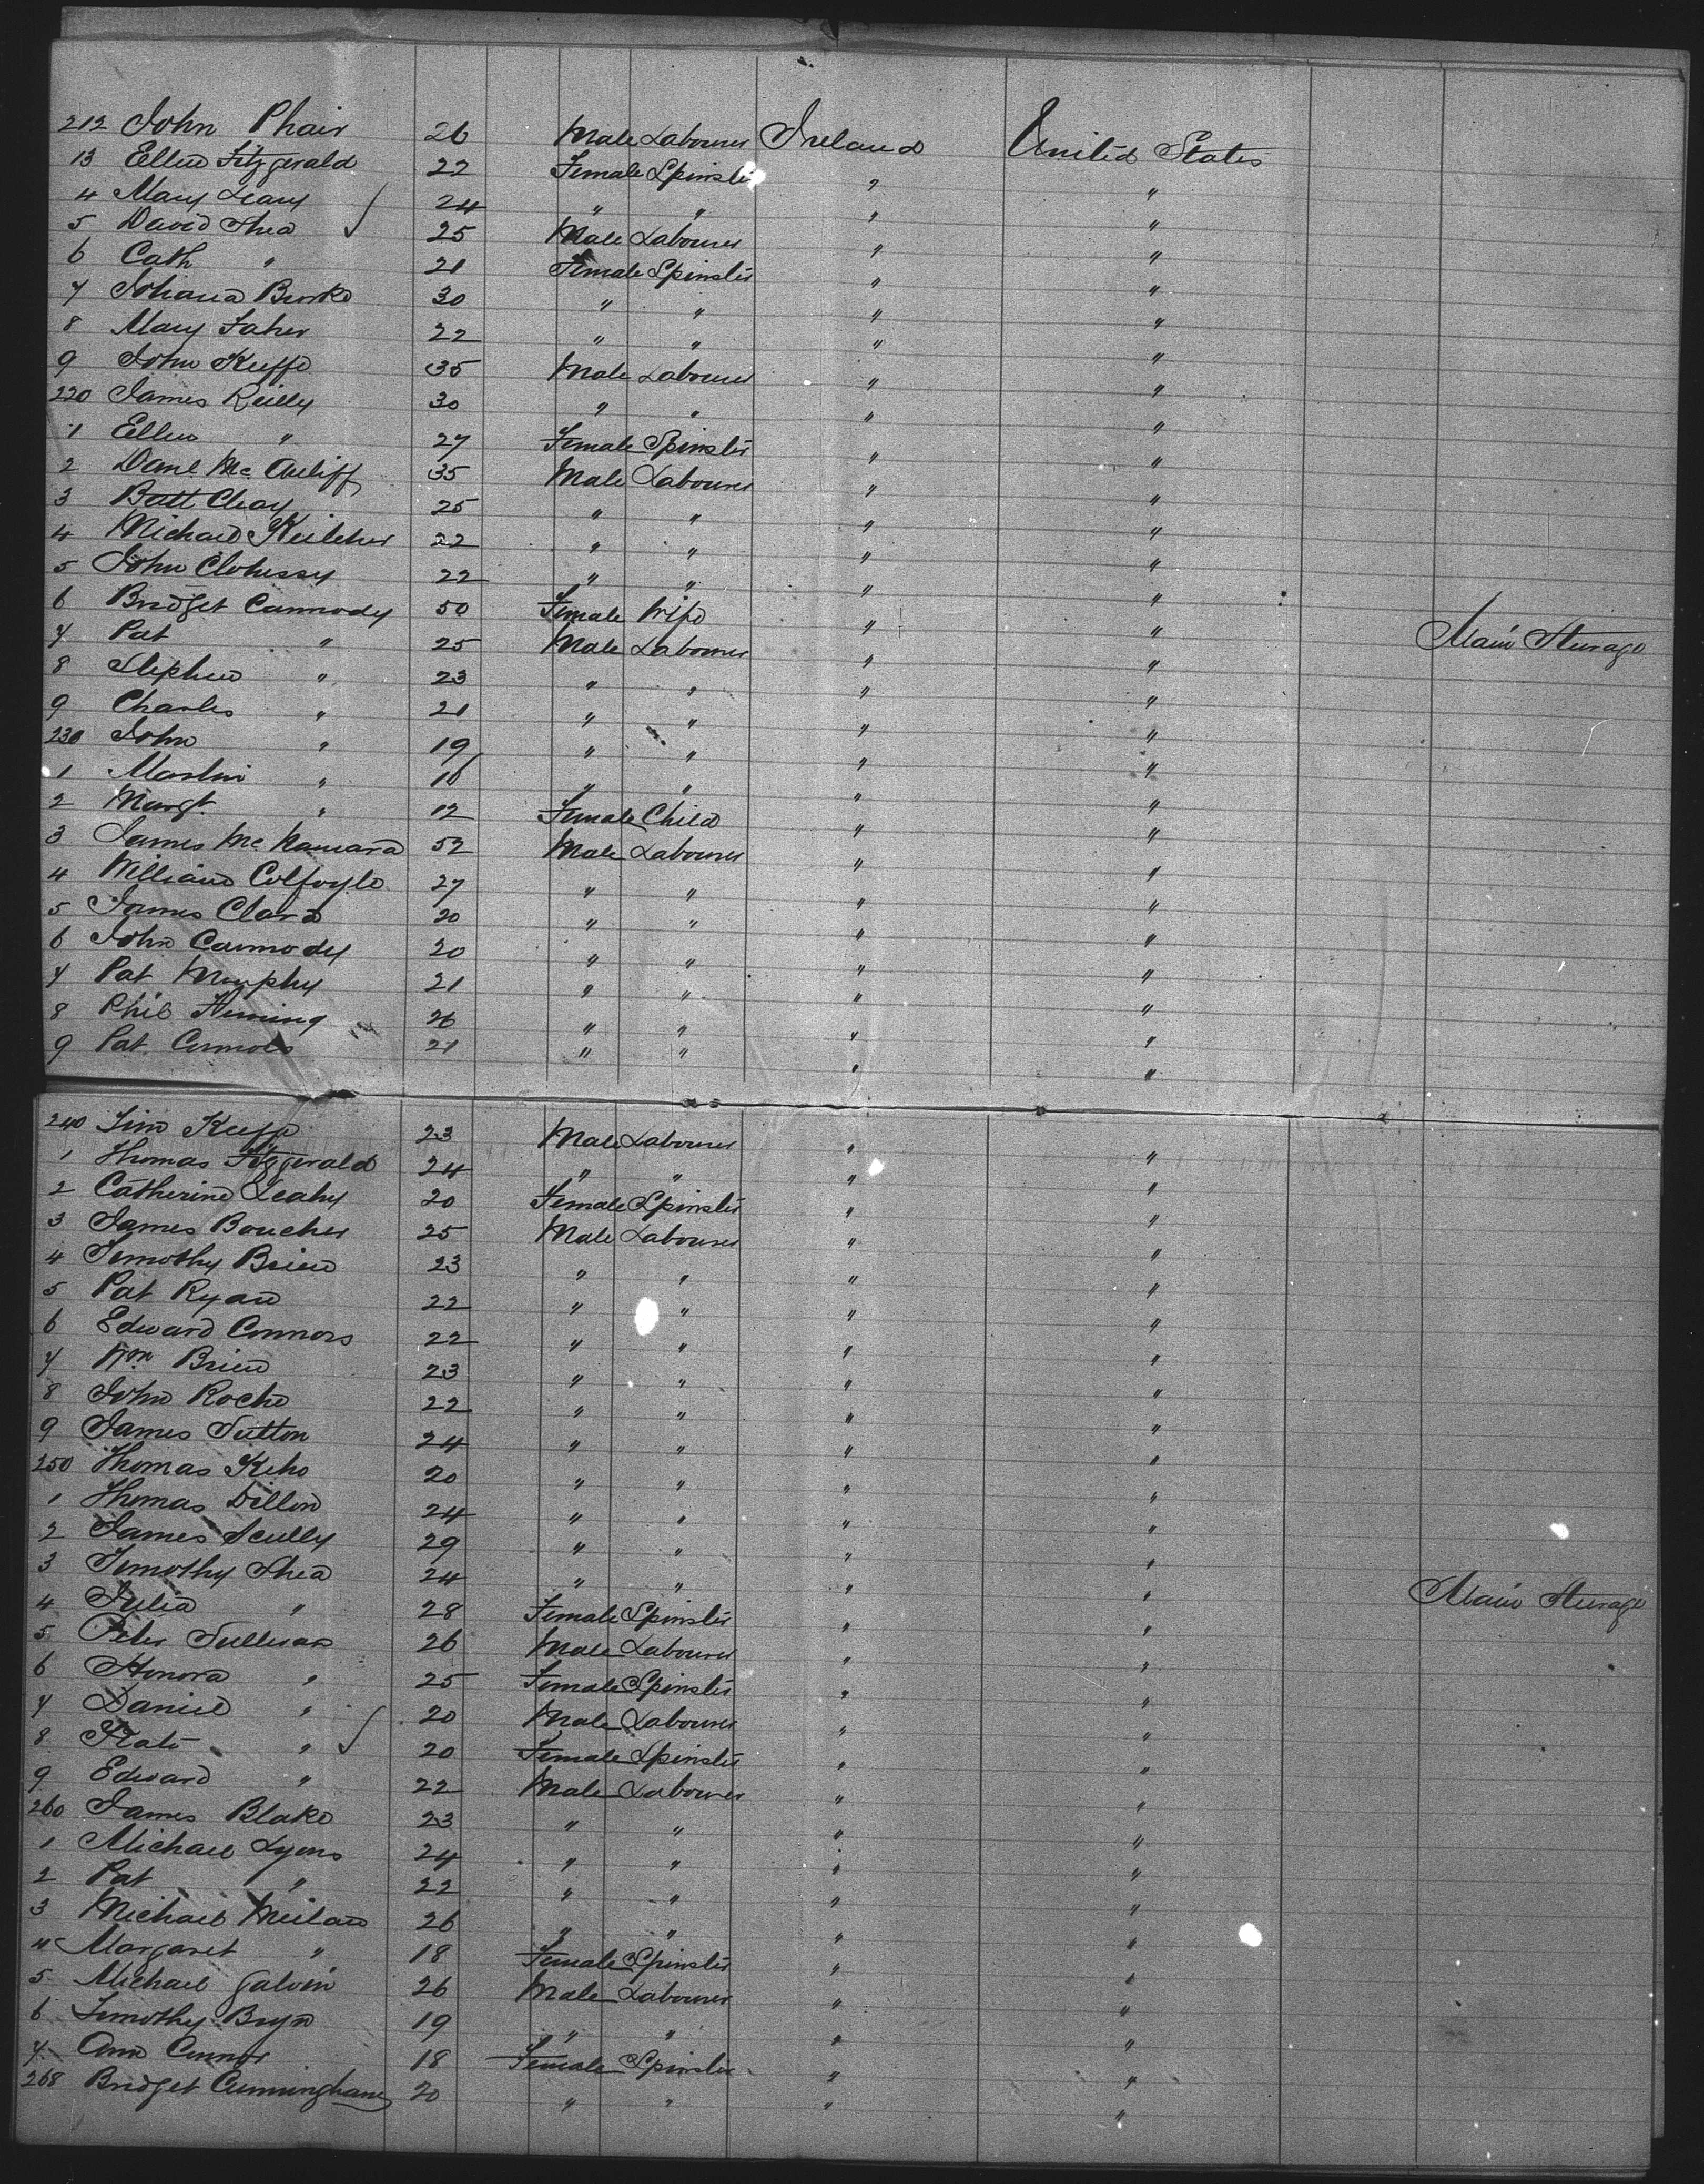 212 John Phair 26 Male Labourer Ireland United States
13 Ellen Fitzgerald 22 Female Spinster " "
4 Mary Leary 24 " " " "
5 David Shea 25 Male Labourer " "
6 Cath " 21 Female Spinster " "
7 Johana Burke 30 " " " "
8 Mary Faher 22 " " " "
9 John Keeffe 35 Male Labourer " "
220 James Reilly 30 " " " "
1 Ellen " 27 Female Spinster " "
2 Danl. Mc Auliff 35 Male Labourer " "
3 Batt Cleary 25 " " " "
4 Michael Keileher 22 " " " "
5 John Clohessy 22 " " " "
6 Bridget Carmody 50 Female Wife " "
7 Pat " 25 Male Labourer " " Main Steerage
8 Stephen " 23 " " " "
9 Charles " 21 " " " "
230 John " 19 " " " "
1 Martin " 16 " " " "
2 Margt. " 12 Female Child " "
3 James Mc Namara 52 Male Labourer " "
4 William Colfoyle 27 " " " "
5 James Clara 20 " " " "
6 John Carmody 20 " " " "
7 Pat Murphy 21 " " " "
8 Phil Fleming 26 " " " "
9 Pat Connors 21 " " " "
240 Tim Keeffe 23 Male Labourer " "
1 Thomas Fitzgerald 24 " " " "
2 Catherine Leahy 20 Female Spinster " "
3 James Boucher 25 Male Labourer " "
4 Timothy Brien 23 " " " "
5 Pat Ryan 22 " " " "
6 Edward Connors 22 " " " "
7 Wm Brien 23 " " " "
8 John Roche 22 " " " "
9 James Sutton 24 " " " "
250 Thomas Keho 20 " " " "
1 Thomas Dillon 24 " " " "
2 James Scully 29 " " " "
3 Timothy Shea 24 " " " "
4 Julia " 28 Female Spinster " " Main Steerage
5 Peter Sullivan 26 Male Labourer " "
6 Honora " 25 Female Spinster " "
7 Daniel " 20 Male Labourer " "
8 Kate " 20 Female Spinster " "
9 Edward " 22 Male Labourer " "
260 James Blake 23 " " " "
1 Michael Lyons 24 " " " "
2 Pat " 22 " " " "
3 Michael Meilan 26 " " " "
4 Margaret " 18 Female Spinster " "
5 Michael Galvin 26 Male Labourer " "
6 Timothy Bryn 19 " " " "
7 Ann Connor 18 Female Spinster " "
268 Bridget Cunningham 20 " " " "